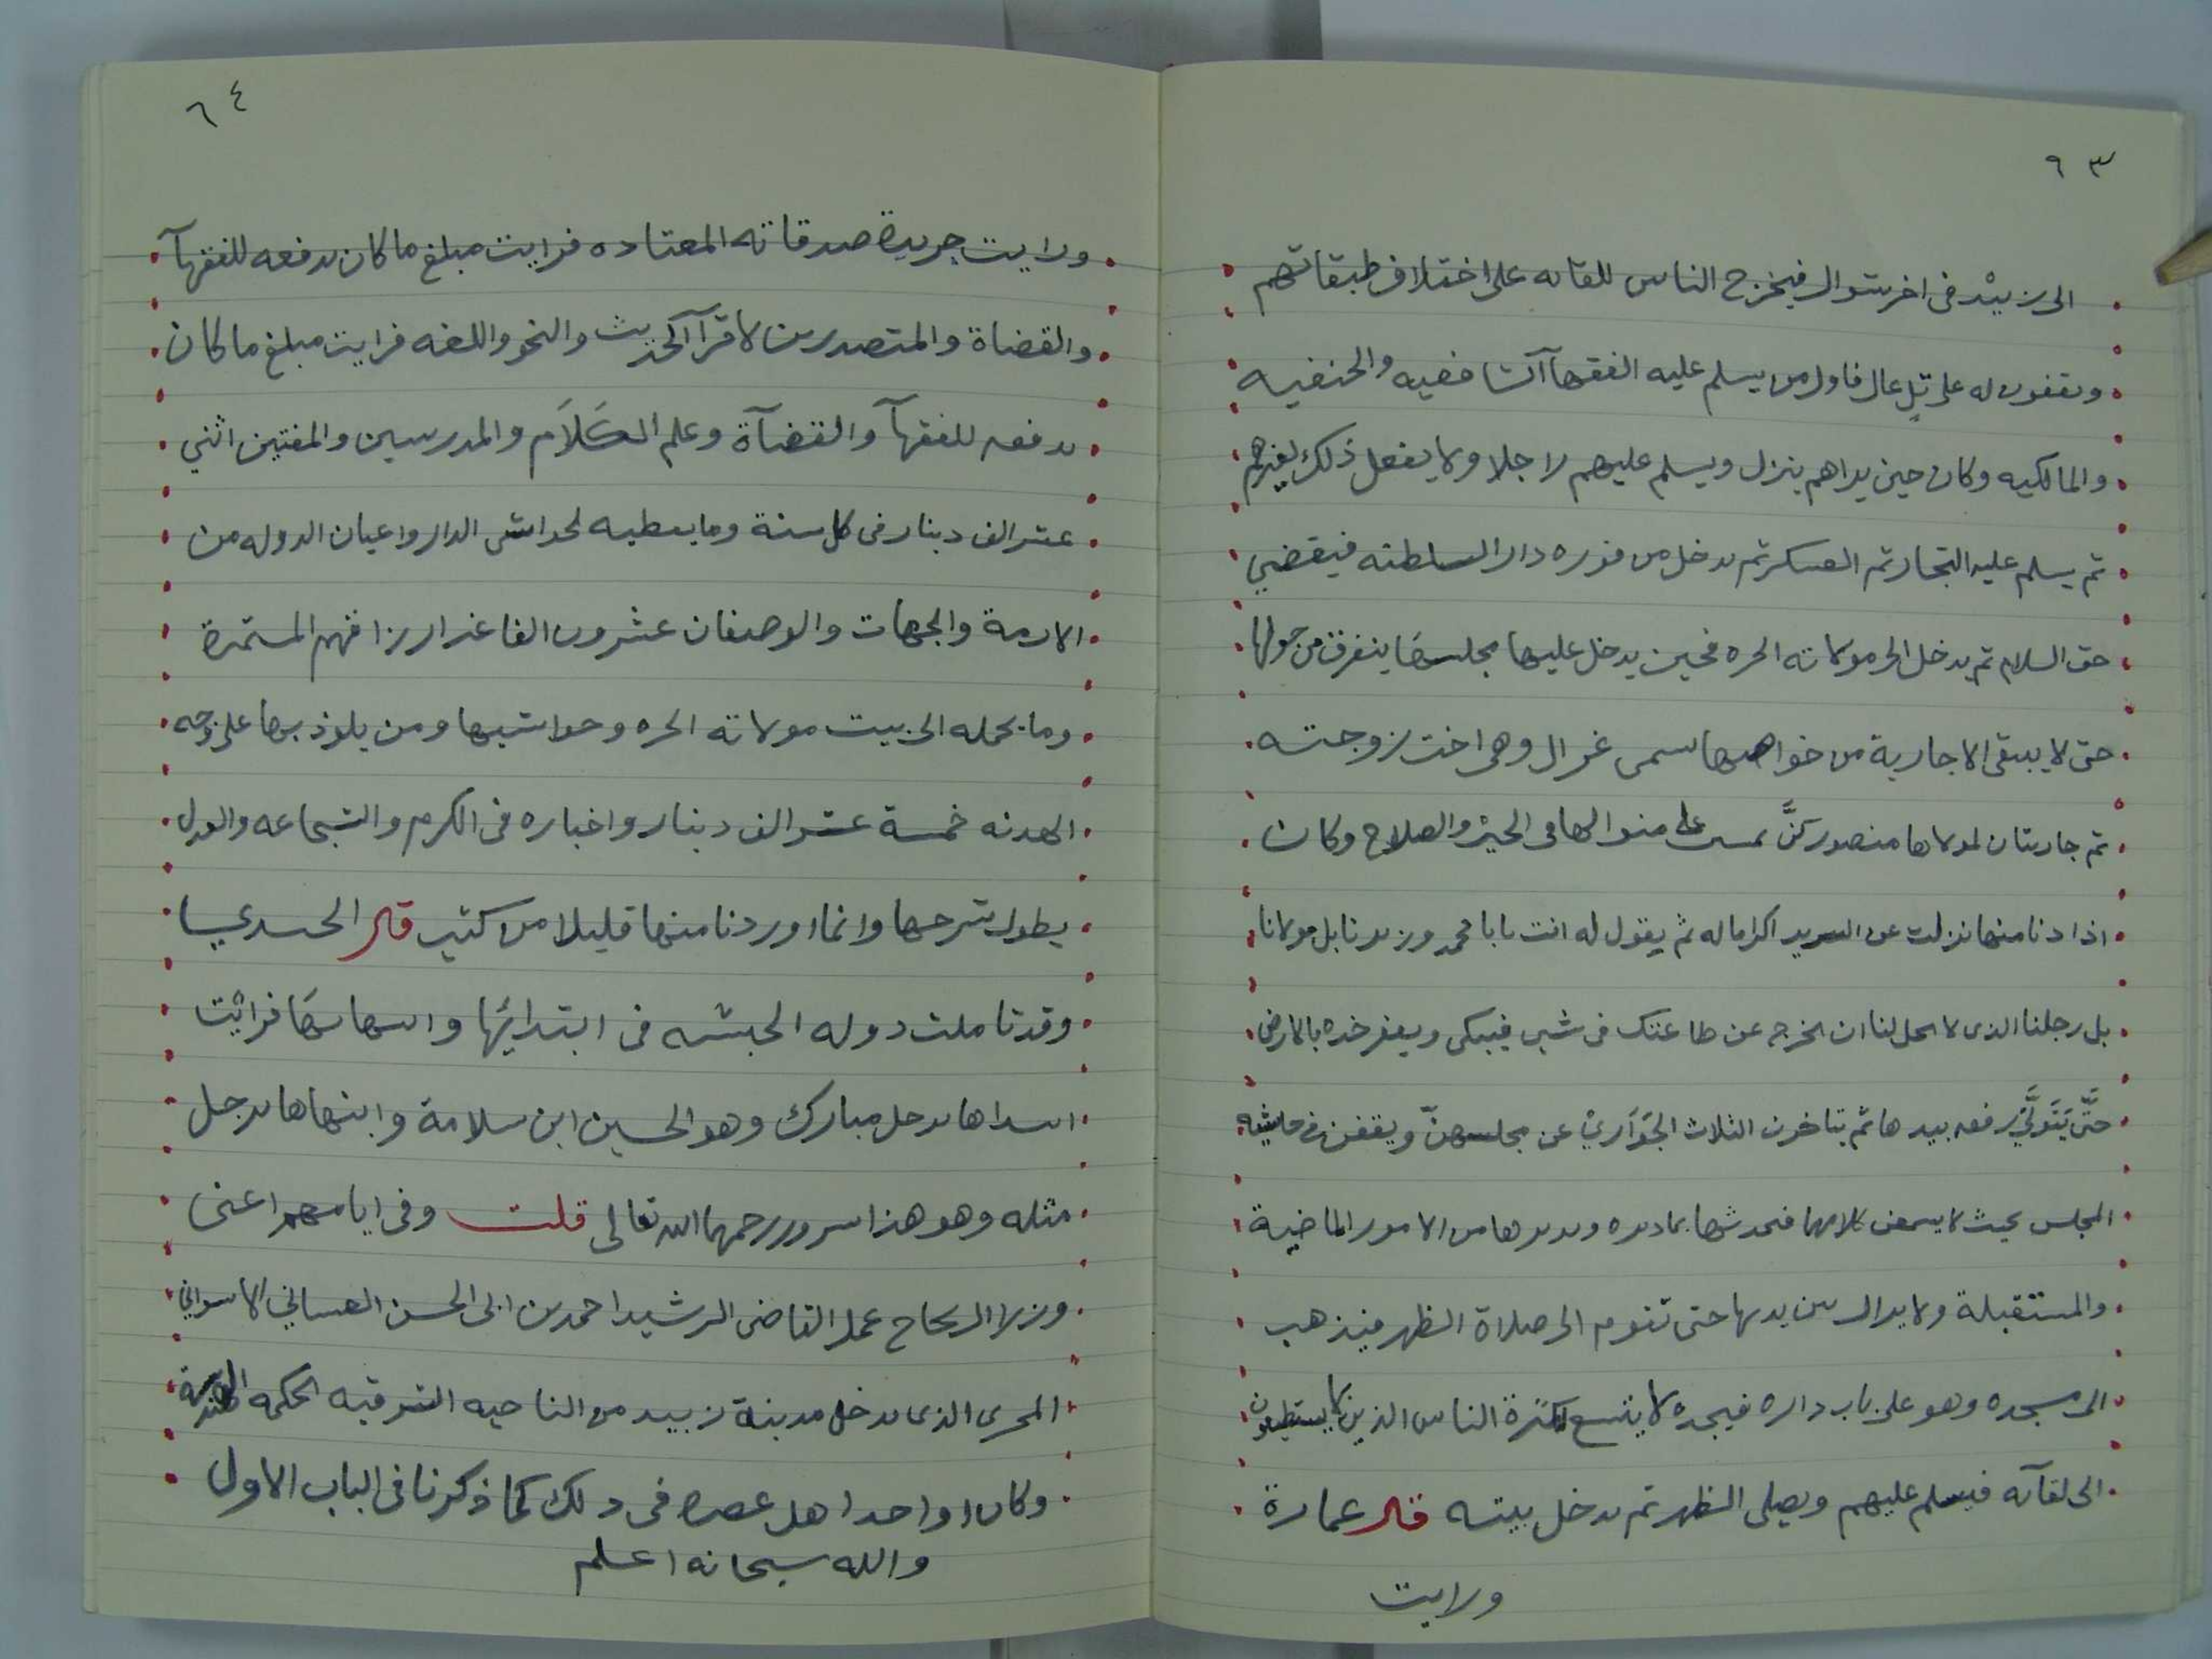 ٩٣
الى زبيْد فى اخر شوال فيخرج الناس للقائه على اختلاف طبقاتهم
ويقفون له على تلٍ عال فاول من يسلم عليه الفقهآ الشافعيه والحنفيه
والمالكيه وكان حين يراهم ينزل ويسلم عليهم راجلا ولا يفعل ذلك لغيرهم
ثم يسلم عليه التجار ثم العسكر ثم يدخل من فوره دار السلطنه فيقضي
حق السلام ثم يدخل الى مولاته الحره فحين يدخل عليها مجلسهَا يتفرق من حولها
حتى لا يبقى الا جارية من خواصها سمى غزال وهى اخت زوجته
ثم جاريتان لمولاها منصور كنَّ على منوالها فى الخيْر والصلاح وكان
اذا دنا منها نزلت عن السرير اكراما له ثم يقول له انت يا با محمد وزيرنا بل مولانا
بل رجلنا الذى لا يحل لنا ان نخرج عن طاعتك فى شىء فيبكى ويعفر خده بالارض
حتَّى يَتَولَّى رفعه بيدها ثم يتاخرن الثلاث الجَوَاري عن مجلسهنّ ويقفن فى حاشيه
المجلس بحيث لا يسمعن كلامها فيحدثها بما دبره ويدبرها من الامور الماضية
والمستقبلة ولا يزال بين يديها حتى تقوم الى صلاة الظهر فيذهب
الى مسجده وهو على باب داره فيجده لا يتسع لكثرة الناس الذين لا يستطيعون
الى لقآئه فيسلم عليهم ويصلى الظهر ثم يدخل بيته قال عمارة
ورايت
٦٤
ورايت جريدة صدقاته المعتاده فرايت مبلغ ما كان يدفعه للفقهآ
والقضاة والمتصدرين لاقرآ الحديث والنحو واللغه فرايت مبلغ ما كان
يدفعه للفقهآ والقضآة وعلم الكَلاَم والمدرسين والمفتين اثني
عشر الف دينار فى كل سنة وما يعطيه لحواشى الدار واعيان الدوله من
الازمة والجهات والوصفان عشرون الفا غير ارزاقهم المستمرة
وما يحمله الى بيت مولاته الحره وحواشيها ومن يلوذ بها على وجه
الهدنه خمسة عشر الف دينار واخباره فى الكرم والشجاعه والعدل
يطول شرحها وانما اوردنا منها قليلا من كثير قال
وقد تاملت دوله الحبشه فى ابتدائها وانتهائهَا فرائت
ابتداها برجل مبارك وهو الحسين ابن سلامة وانتهاها برجل
مثله وهو هذا سرور رحمهما الله تعالى قلت وفى ايامهم اعنى
وزرا ال نجاح عمل القاضى الرشيد احمد بن ابى الحسن الغسانى الاسوانى
المجرى الذى يدخل مدينة زبيد من الناحيه الشرقيه لحكمه
وكان اوحد اهل عصره فى ذلك كما ذكرنا فى الباب الاول
والله سبحانه اعلم